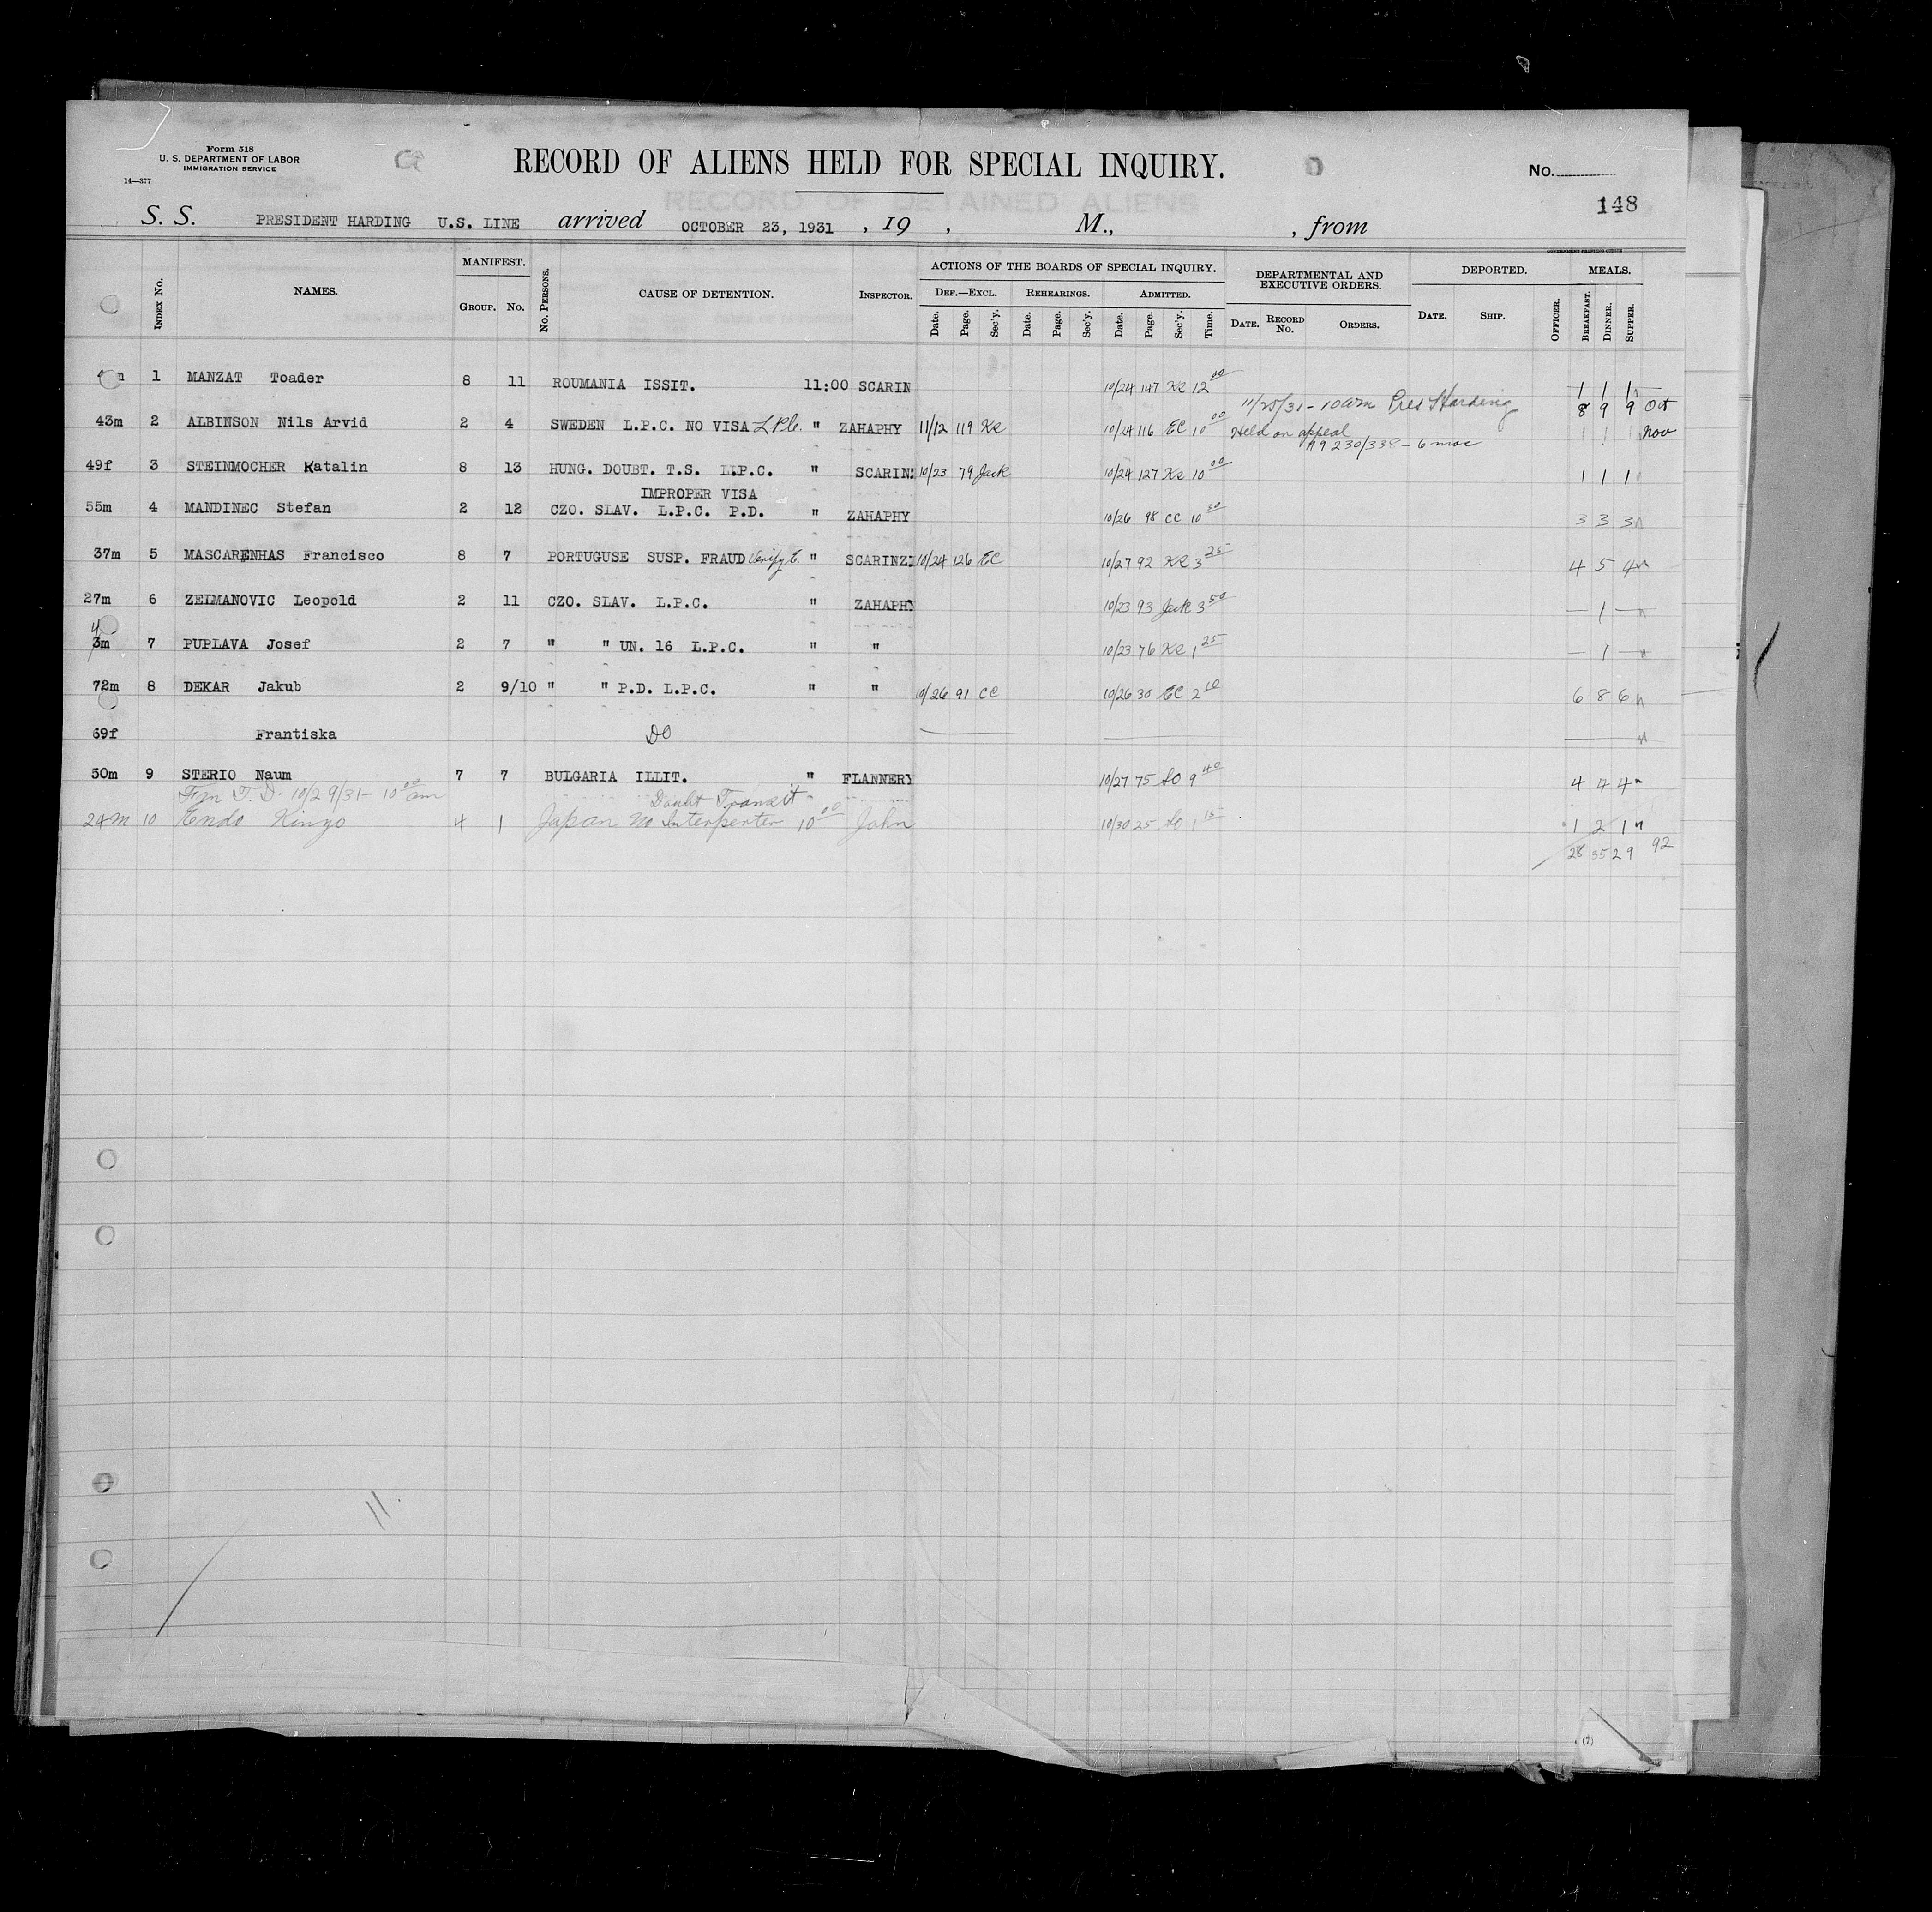 Form 518
U. S. DEPARTMENT OF LABOR
IMMIGRATION SERVICE
14—377
RECORD OF ALIENS HELD FOR SPECIAL INQUIRY.
No.
148
RECORD OF DETAINED ALIENS
S. S. PRESIDENT HARDING U.S. LINE arrived OCTOBER 23, 1931 , 19 , M., , from
GOVERNMENT PRINTING OFFICE
INDEX No. NAMES. MANIFEST. GROUP. No. No. PERSONS. CAUSE OF DETENTION. INSPECTOR.
ACTIONS OF THE BOARDS OF SPECIAL INQUIRY. DEF.—EXCL. Date. Page. Sec'y. REHEARINGS. Date. Page. Sec'y. ADMITTED. Date. Page. Sec'y. Time.
DEPARTMENTAL AND EXECUTIVE ORDERS. DATE. RECORD No. ORDERS. DEPORTED. DATE. SHIP. OFFICER. MEALS. BREAKFAST. DINNER. SUPPER.
1 MANZAT Toader 8 11 ROUMANIA ISSIT. 11:00 SCARIN 10/24 147 KR 12 00 1 1 1
11/25/31 - 10am Pres Harding 8 9 9 Oct
43m 2 ALBINSON Nils Arvid 2 4 SWEDEN L.P.C. NO VISA L.P.C. " ZAHAPHY 11/12 119 KR 10/24 116 EC 10 00 Held on appeal Nov
- 6 mac
49f 3 STEINMOCHER Katalin 8 13 HUNG. DOUBT. T.S. L.P.C. " SCARIN 10/23 79 Jack 10/24 127 KR 10 00 1 1 1
IMPROPER VISA
55m 4 MANDINEC Stefan 2 12 CZO. SLAV. L.P.C. P.D. " ZAHAPHY 10/26 98 CC 10 30 3 3 3
37m 5 MASCARENHAS Francisco 8 7 PORTUGUSE SUSP. FRAUD Verify " SCARINZI 10/24 126 EC 10/27 92 KR 3 25 4 5 4
27m 6 ZELMANOVIC Leopold 2 11 CZO. SLAV. L.P.C. " ZAHAPHY 10/23 93 Jack 3 50 — 1 —
4
3m 7 PUPLAVA Josef 2 7 " " UN. 16 L.P.C. " " 10/23 76 KR 1 25 — 1 —
72m 8 DEKAR Jakub 2 9/10 " " P.D. L.P.C. " " 10/26 91 CC 10/26 30 EC 2 10 6 8 6
69f Frantiska DO
50m 9 STERIO Naum 7 7 BULGARIA ILLIT. " FLANNERY 10/27 75 SO 9 40 4 4 4
Fm T.D. 10/29/31 - 10 00 am Doubt Transit
24m 10 Kendo Kinzo 4 1 Japan no Interperter 10 00 John 10/30 25 SO 1 15 1 2 1
28 35 29 92
11